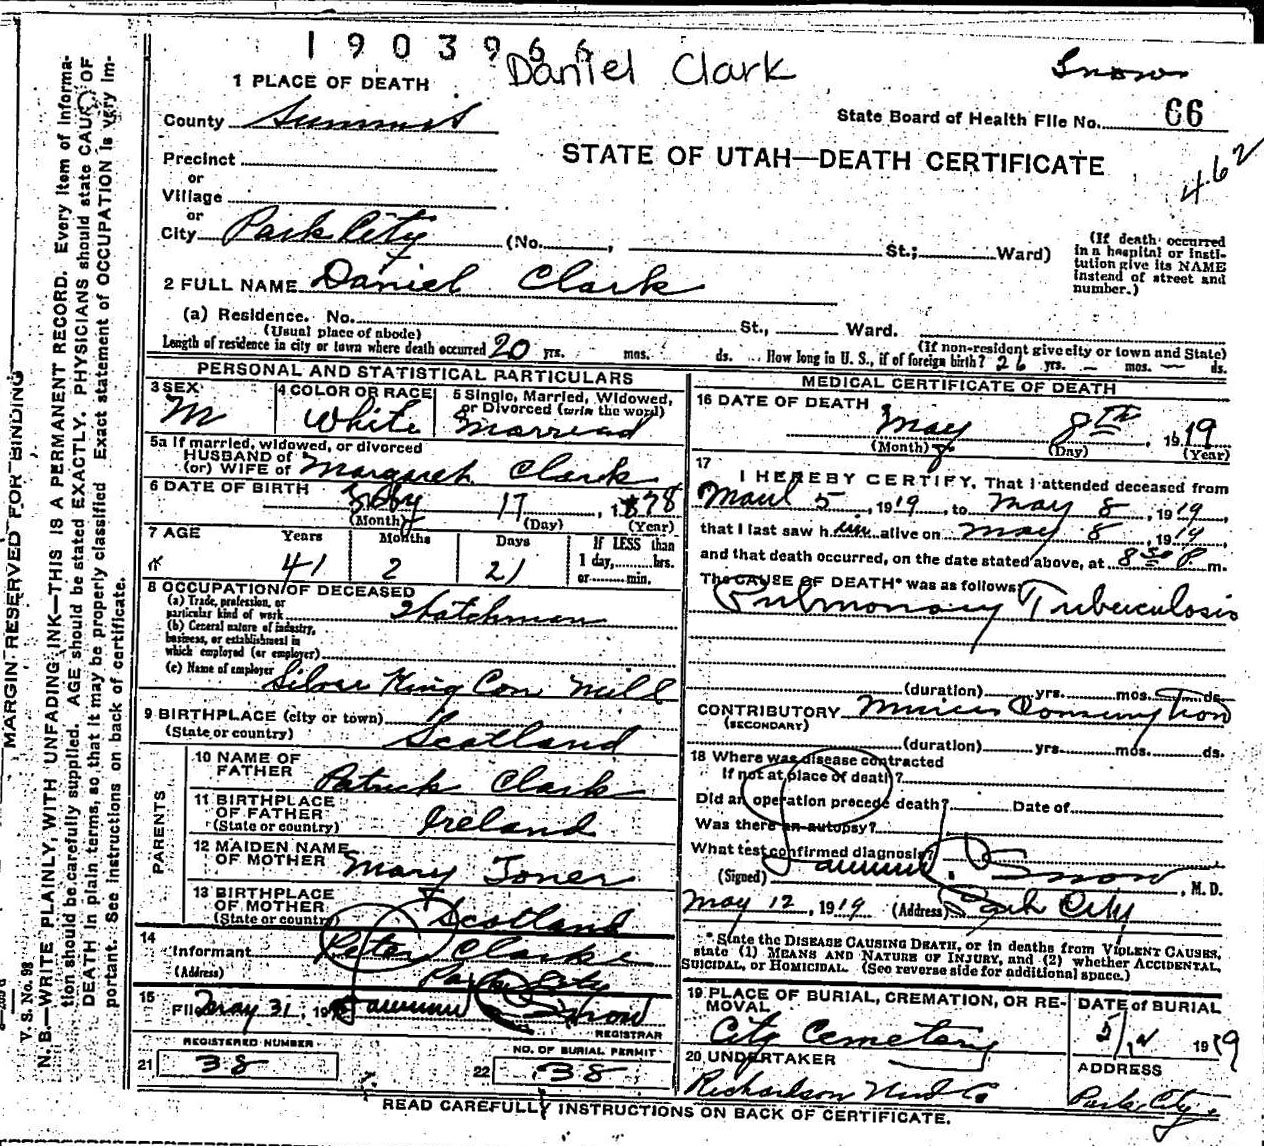 1903966
Daniel Clark
Snow
1 PLACE OF DEATH
County Summit
State Board of Health File No. 66
Precinct
STATE OF UTAH—DEATH CERTIFICATE
462
or
Village
or
City Park City (No. , St.; Ward)
(If death occurred in a hospital or institution give its NAME instead of street and number.)
2 FULL NAME Daniel Clark
(a) Residence. No. St., Ward.
(Usual place of abode) (If non-resident give city or town and State)
Length of residence in city or town where death occurred 20 yrs. mos. ds. How long in U. S., if of foreign birth? 26 yrs. — mos. — ds.
PERSONAL AND STATISTICAL PARTICULARS
3 SEX M
4 COLOR OR RACE White
5 Single, Married, Widowed, or Divorced (write the word) Married
5a If married, widowed, or divorced
HUSBAND of
(or) WIFE of Margaret Clark
6 DATE OF BIRTH 17, 1878
(Month) (Day) (Year)
7 AGE Years Months Days If LESS than
41 2 21 1 day, hrs.
or min.
8 OCCUPATION OF DECEASED
(a) Trade, profession, or particular kind of work Watchman
(b) General nature of industry, business, or establishment in which employed (or employer)
(c) Name of employer Silver King Con Mill
9 BIRTHPLACE (city or town)
(State or country) Scotland
PARENTS
10 NAME OF FATHER Patrick Clark
11 BIRTHPLACE OF FATHER (State or country) Ireland
12 MAIDEN NAME OF MOTHER Mary Toner
13 BIRTHPLACE OF MOTHER (State or country) Scotland
14
Informant Peter Clark
(Address) Park City
15
Filed May 31, 19 Snow
REGISTRAR
REGISTERED NUMBER
21 38
NO. OF BURIAL PERMIT
22 38
MEDICAL CERTIFICATE OF DEATH
16 DATE OF DEATH
May 8th, 1919
(Month) (Day) (Year)
17
I HEREBY CERTIFY, That I attended deceased from
5, 1919, to May 8, 1919,
that I last saw him alive on May 8, 1919,
and that death occurred, on the date stated above, at 8 50 P. m.
The CAUSE OF DEATH* was as follows:
Pulmonary Tuberculosis
(duration) yrs. mos. ds.
CONTRIBUTORY Miners Consumption
(SECONDARY)
(duration) yrs. mos. ds.
18 Where was disease contracted
If not at place of death?
Did an operation precede death? Date of
Was there an autopsy?
What test confirmed diagnosis?
(Signed) Snow, M. D.
May 12, 1919 (Address) Park City
*State the DISEASE CAUSING DEATH, or in deaths from VIOLENT CAUSES, state (1) MEANS AND NATURE OF INJURY, and (2) whether ACCIDENTAL, SUICIDAL, or HOMICIDAL. (See reverse side for additional space.)
19 PLACE OF BURIAL, CREMATION, OR REMOVAL
City Cemetery
DATE of BURIAL
1919
20 UNDERTAKER
Richardson
ADDRESS
Park City
READ CAREFULLY INSTRUCTIONS ON BACK OF CERTIFICATE.
MARGIN RESERVED FOR BINDING
V. S. No. 98
N. B.—WRITE PLAINLY, WITH UNFADING INK—THIS IS A PERMANENT RECORD. Every item of information should be carefully supplied. AGE should be stated EXACTLY. PHYSICIANS should state CAUSE OF DEATH in plain terms, so that it may be properly classified. Exact statement of OCCUPATION is very important. See instructions on back of certificate.